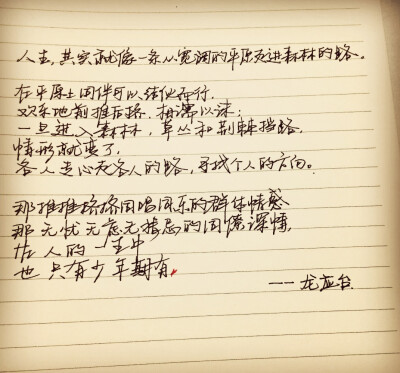 人生,其实就像一条从宽阔的平原走进森林的路。
在平原上同伴可以结伙而行,
欢乐地前推后挤、相濡以沫;
一旦进入森林,草丛和荆棘挡路,
情形就变了,
各人专心走各人的路,寻找个人的方向。
那推推挤挤同唱同乐的群体情感
那无忧无虑无猜忌的同僚深情,
在人的一生中
也只有少年期有。
——龙应台